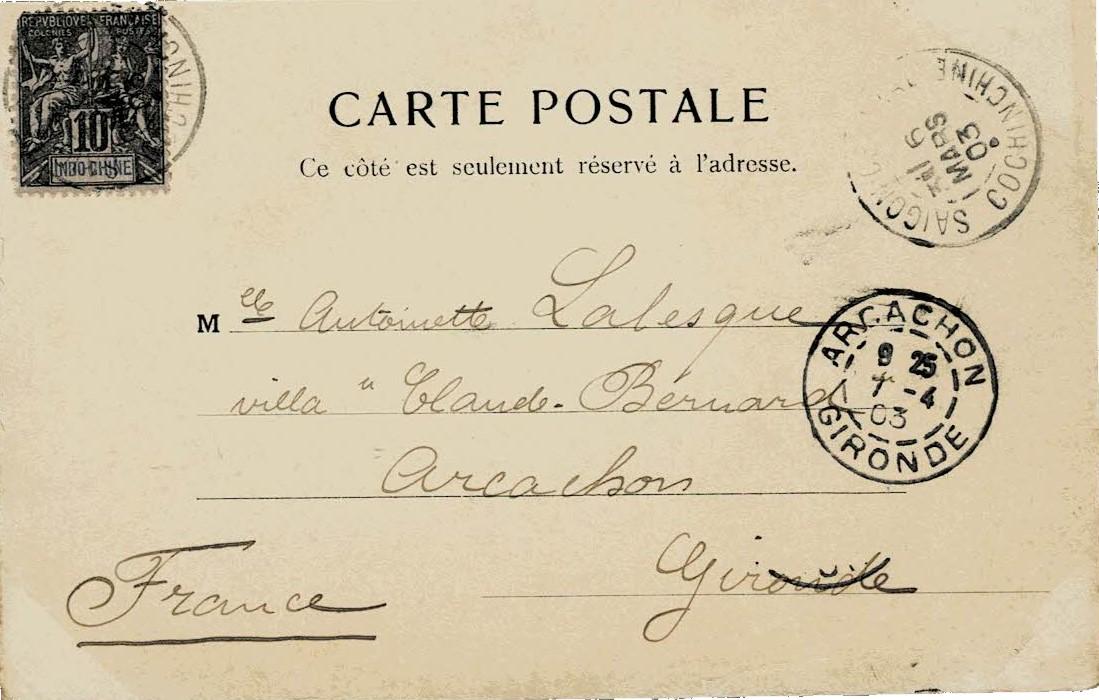 REPVBLIQVE FRANÇAISE
COLONIES POSTES
10
INDO-CHINE
CARTE POSTALE
Ce côté est seulement réservé à l'adresse.
SAIGON COCHINCHINE
6
MARS
03
Mlle Antoinette Lalesque
villa "Claude-Bernard
Arcachon
Gironde
France
ARCACHON
8 25
7 -4
03
GIRONDE